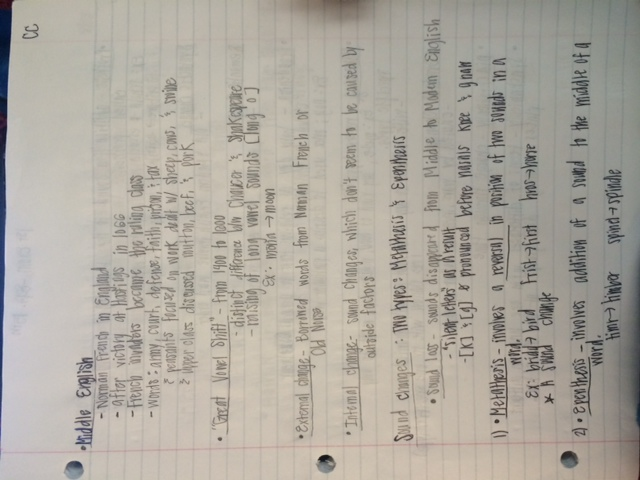 CC
• Middle English
- Norman French in England
- after victory at Hastings in 1066
- French invaders became the ruling class
- words: army, court, defense, faith, prison, & tax
& peasants focused in work deal w/ sheep, cow, & swine
& upper class discussed mutton, beef, & pork
• "Great Vowel Shift" - from 1400 to 1600
- distinct difference b/w Chaucer & Shakespeare
- raising of long vowel sounds [long o]
Ex: mōna → moon
• External change - Borrowed words from Norman French or
Old Norse
• Internal change - sound changes, which don't seem to be caused by
outside factors
Sound changes: Two types: Metathesis & Epenthesis
• Sound loss - sounds disappeared from Middle to Modern English
- "silent letters" as a result
- [K] & [g] pronounced before nasals knee & gnaw
1) • Metathesis - involves a reversal in position of two sounds in a
word.
Ex: bridd → bird frist → first hros → horse
* A sound change
2) • Epenthesis - involves addition of a sound to the middle of a
word.
timr → timber spinel → spindle